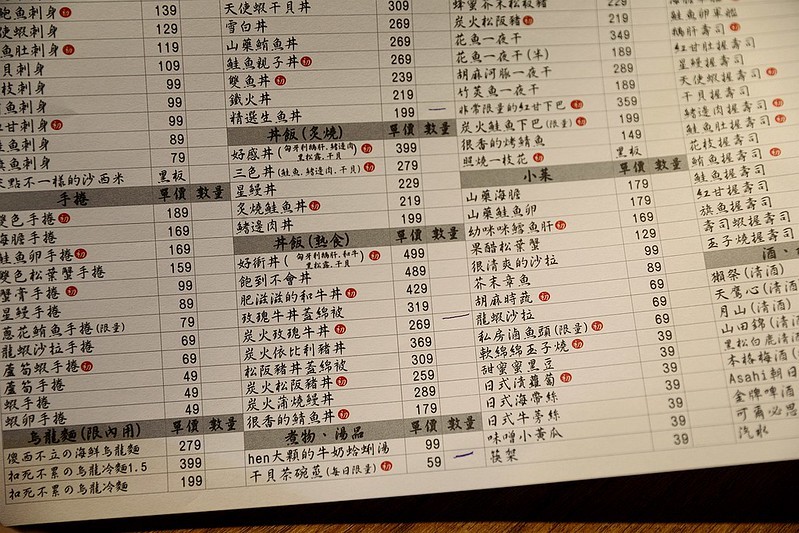 鮑魚刺身 初 139
使蝦刺身 129
魚肚刺身 初 119
貝刺身 109
枝刺身 99
魚刺身 99
紅甘刺身 初 99
魚刺身 89
旗魚刺身 79
點不一樣的沙西米 黑板
手捲 單價 數量
雙色手捲 初 189
海膽手捲 169
鮭魚卵手捲 初 169
雙色松葉蟹手捲 159
蟹膏手捲 初 99
星鰻手捲 89
蔥花鮪魚手捲(限量) 79
龍蝦沙拉手捲 69
蘆筍蝦手捲 初 69
蘆筍手捲 49
蝦手捲 49
蝦卵手捲 49
烏龍麵(限內用) 單價 數量
傻西不立の海鮮烏龍麵 279
扣死不累の烏龍冷麵1.5 399
扣死不累の烏龍冷麵 199
天使蝦干貝丼 309
雪白丼 269
山藥鮪魚丼 269
鮭魚親子丼 初 269
雙魚丼 初 239
鐵火丼 219
精選生魚丼 199
丼飯(炙燒) 單價 數量
好感丼(匈牙利鵝肝.鰭邊肉 黑松露.干貝) 初 399
三色丼(鮭魚.鰭邊肉.干貝) 初 279
星鰻丼 229
炙燒鮭魚丼 初 219
鰭邊肉丼 199
丼飯(熱食) 單價 數量
好術丼(匈牙利鵝肝.和牛 黑松露.干貝) 初 499
飽到不會丼 489
肥滋滋的和牛丼 初 429
玫瑰牛丼蓋綿被 319
炭火玫瑰牛丼 初 269
炭火依比利豬丼 369
松阪豬丼蓋綿被 309
炭火松阪豬丼 初 259
炭火蒲燒鰻丼 289
很香的鯖魚丼 初 179
煮物、湯品 單價 數量
hen大顆的牛奶蛤蜊湯 99
干貝茶碗蒸(每日限量) 初 59
蜂蜜芥末松阪豬 229
炭火松阪豬 初 219
花魚一夜干 349
花魚一夜干(半) 189
胡麻河豚一夜干 289
竹筴魚一夜干 189
非常限量的紅甘下巴 初 359
炭火鮭魚下巴(限量) 初 199
很香的烤鯖魚 149
照燒一枝花 初 黑板
小菜 單價 數量
山藥海膽 179
山藥鮭魚卵 179
幼咪咪鱈魚肝 初 169
果醋松葉蟹 129
很清爽的沙拉 99
芥末章魚 89
胡麻時蔬 初 69
龍蝦沙拉 69
私房滷魚頭(限量) 初 69
軟綿綿玉子燒 初 39
甜蜜蜜黑豆 39
日式漬蘿蔔 初 39
日式海帶絲 39
日式牛蒡絲 39
味噌小黃瓜 39
筷架 39
鮭魚卵軍艦
鵝肝壽司 初
紅甘肚握壽司
星鰻握壽司
天使蝦握壽司 初
干貝握壽司
鰭邊肉握壽司 初
鮭魚肚握壽司 初
花枝握壽司
鮪魚握壽司 初
鮭魚握壽司
紅甘握壽司
旗魚握壽司
壽司蝦握壽司
玉子燒握壽司
酒、
獺祭(清酒)
天鷹心(清酒)
月山(清酒)
山田錦(清酒)
黑松白鹿清酒
本格梅酒
Asahi朝日
金牌啤酒
可爾必思
汽水